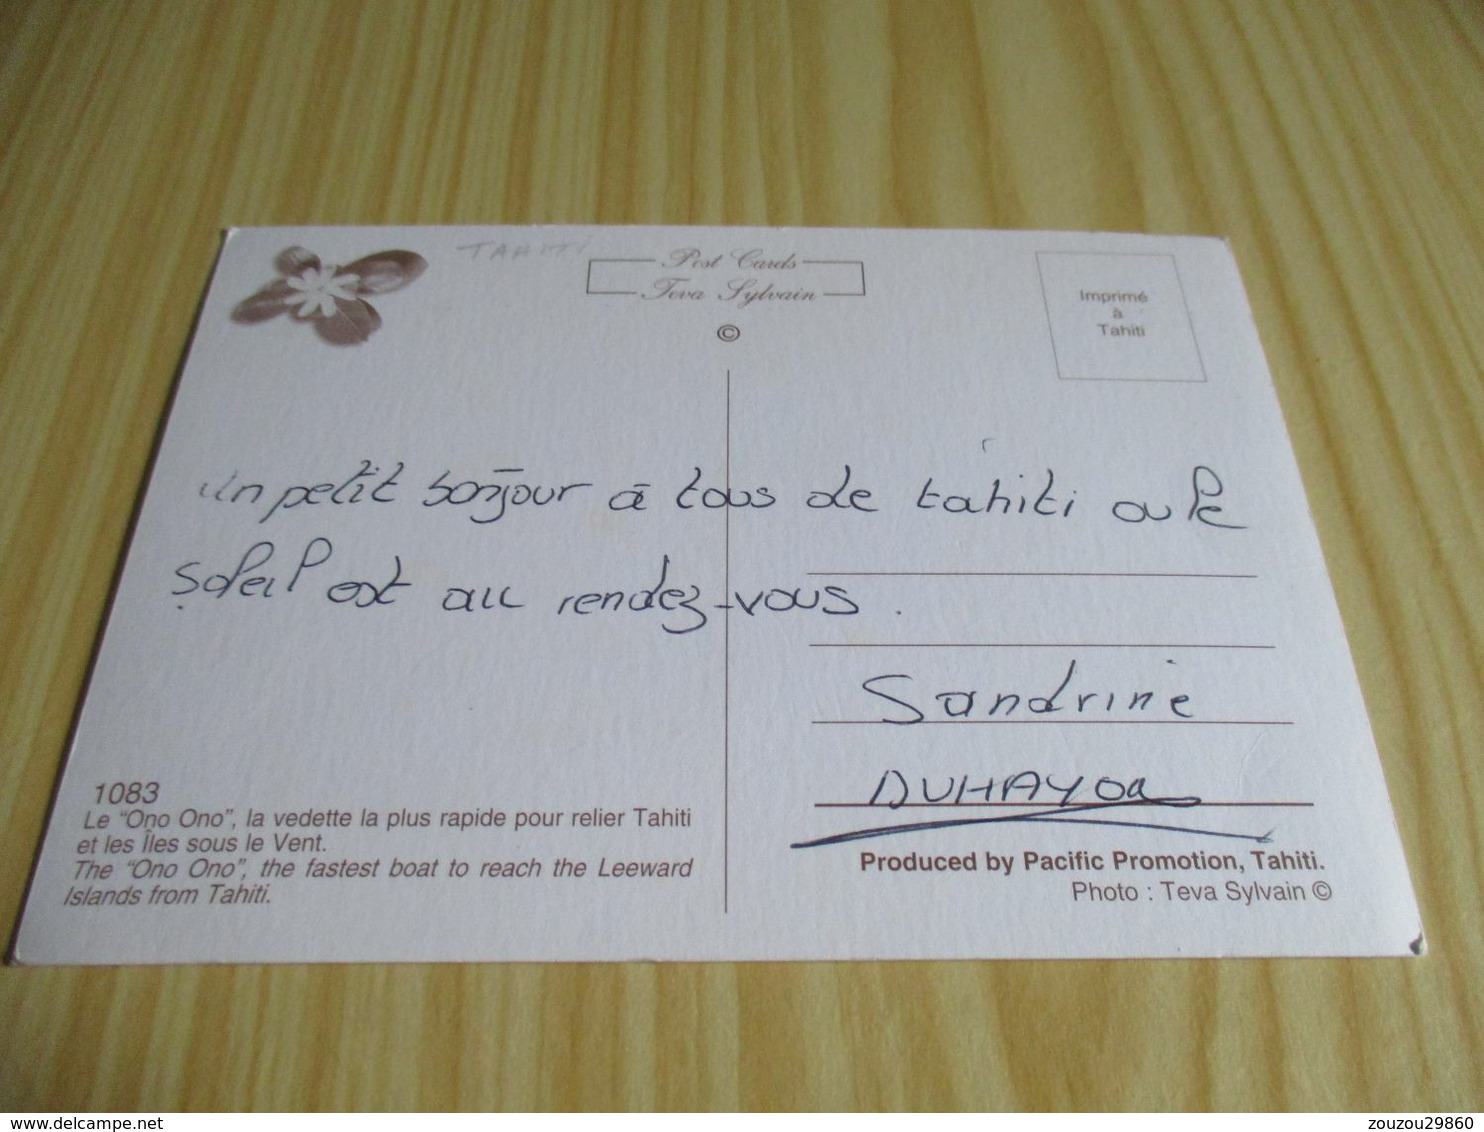 TAHITI
Post Cards
Teva Sylvain
©
Imprimé
à
Tahiti
un petit bonjour à tous de tahiti ou le
soleil est au rendez-vous.
Sandrine
1083
Le "Ono Ono", la vedette la plus rapide pour relier Tahiti
et les Îles sous le Vent.
The "Ono Ono", the fastest boat to reach the Leeward
Islands from Tahiti.
Produced by Pacific Promotion, Tahiti.
Photo : Teva Sylvain ©
delcampe.net
zouzou29860